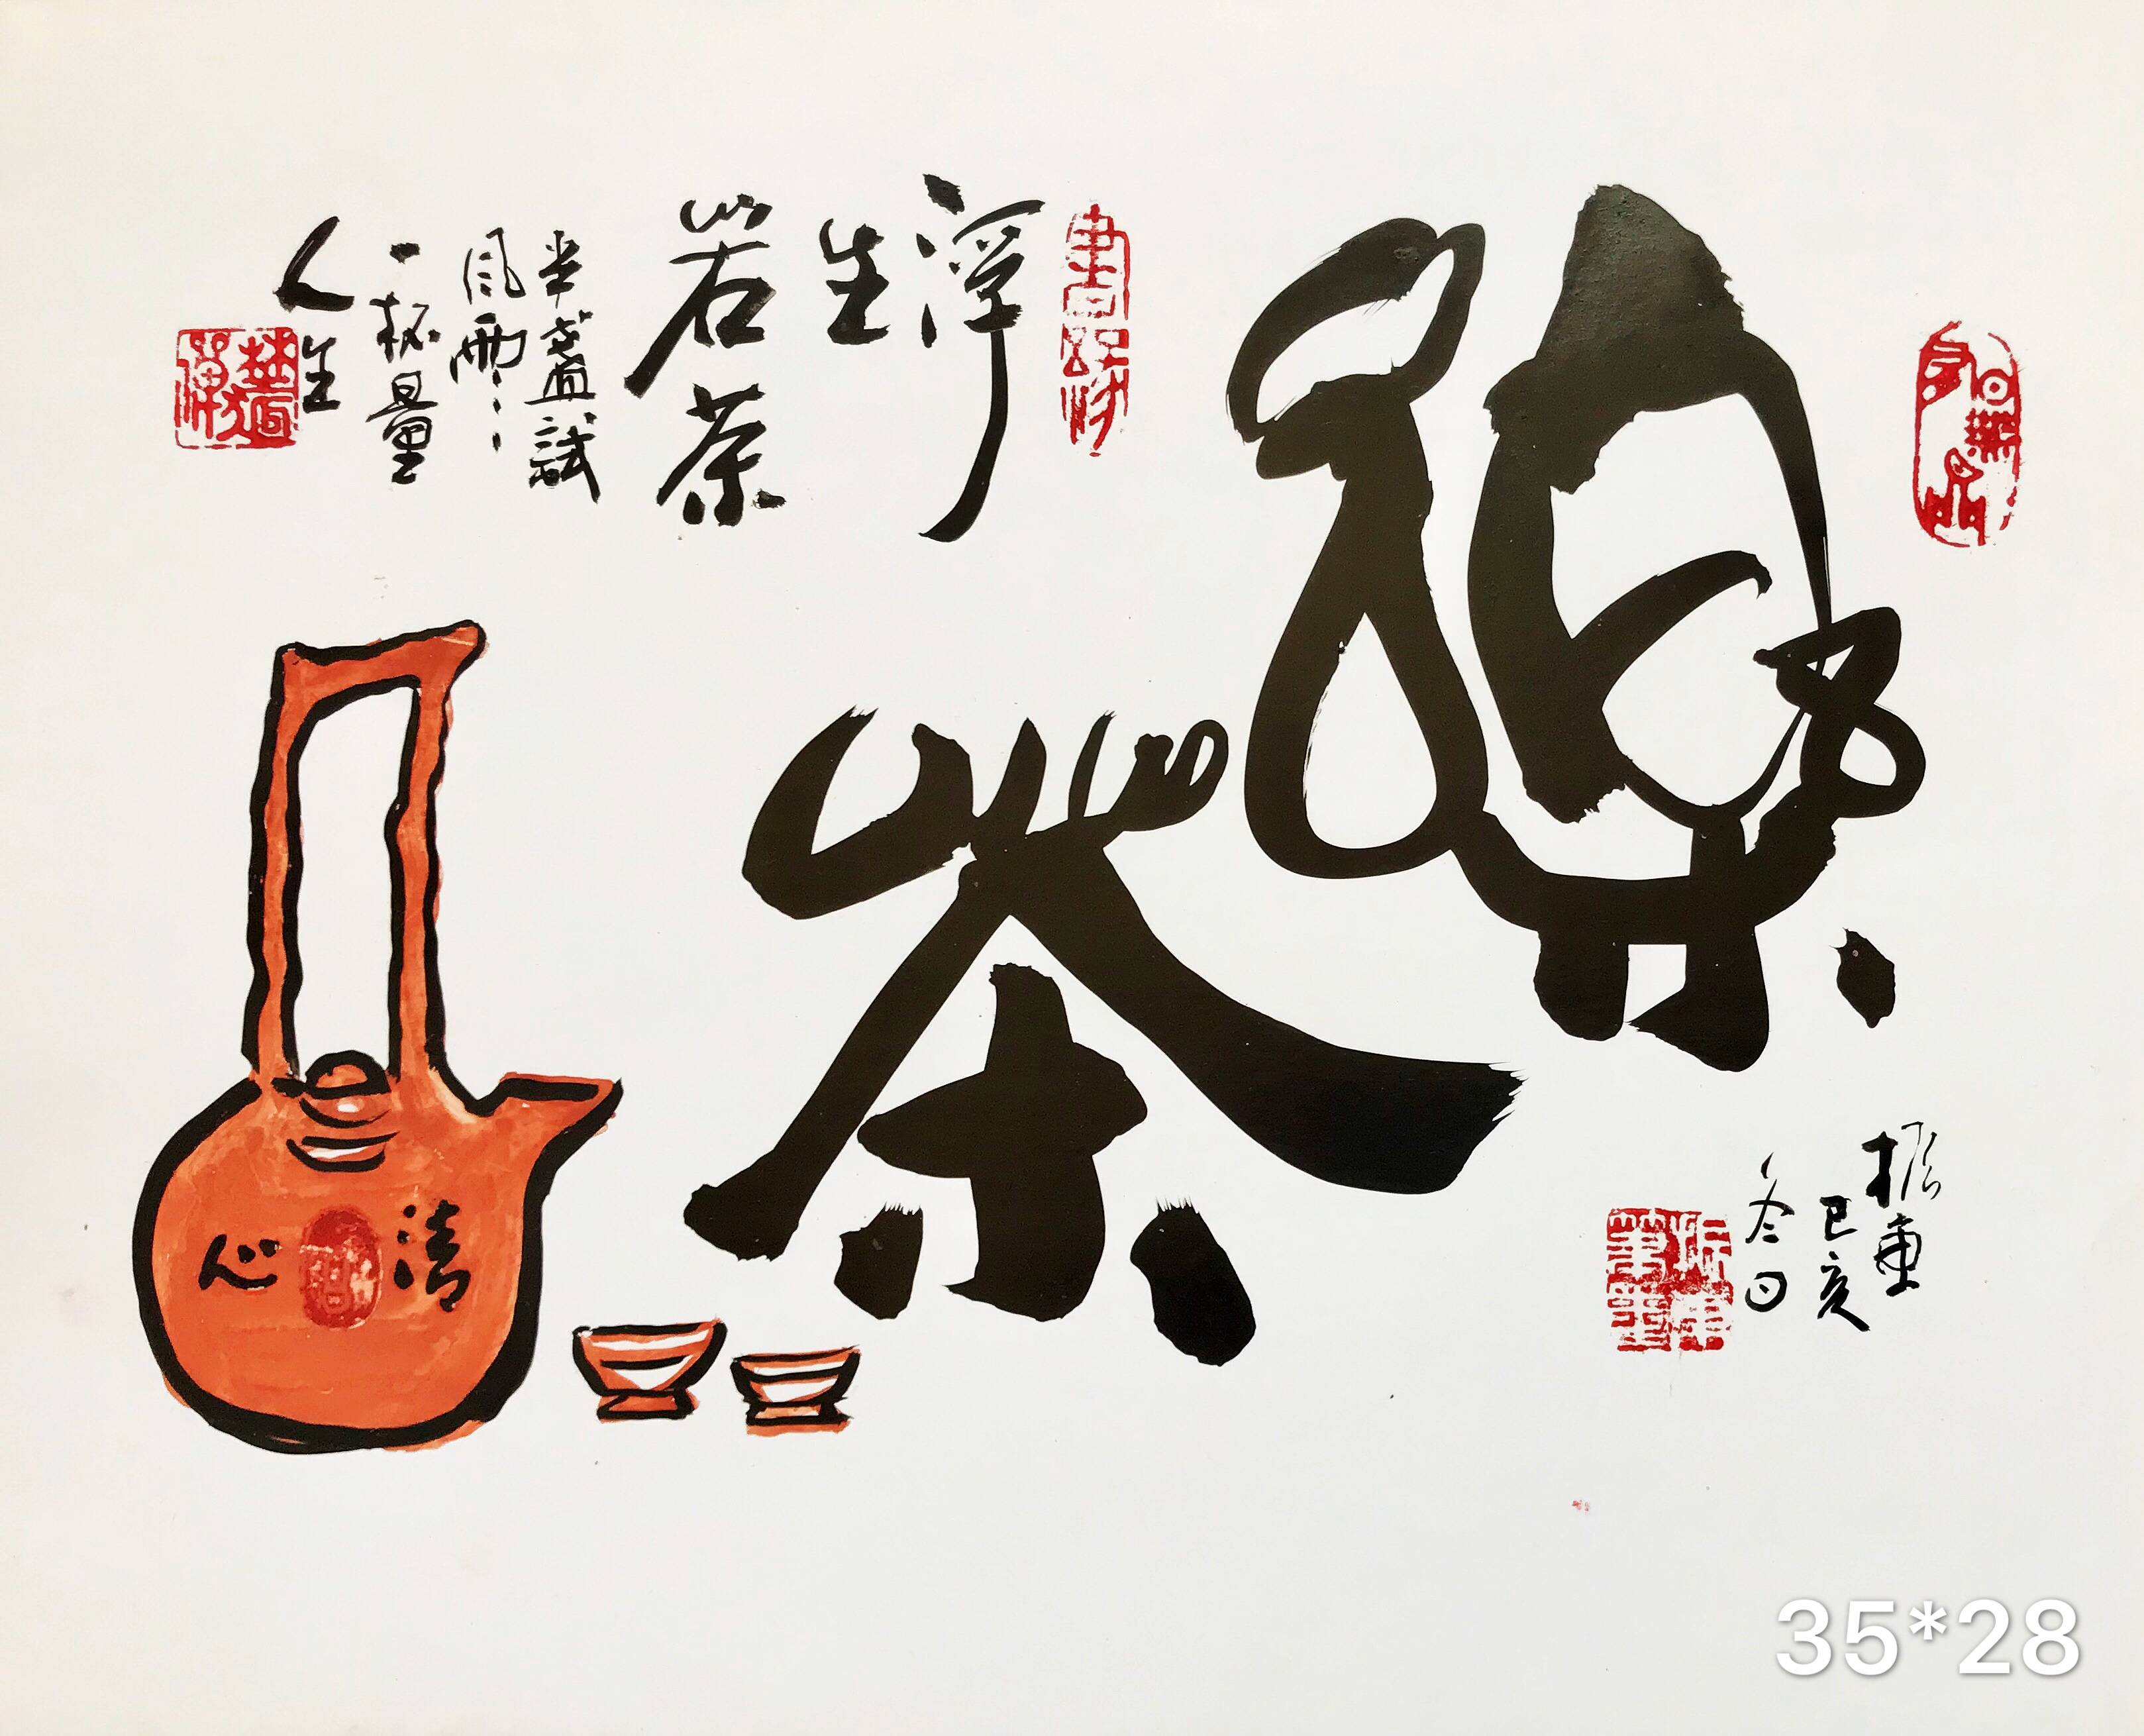 樂
茶
振
己亥
冬日
浮
生
若茶
半盞試
風雨
一杯量
人生
清
心
35*28